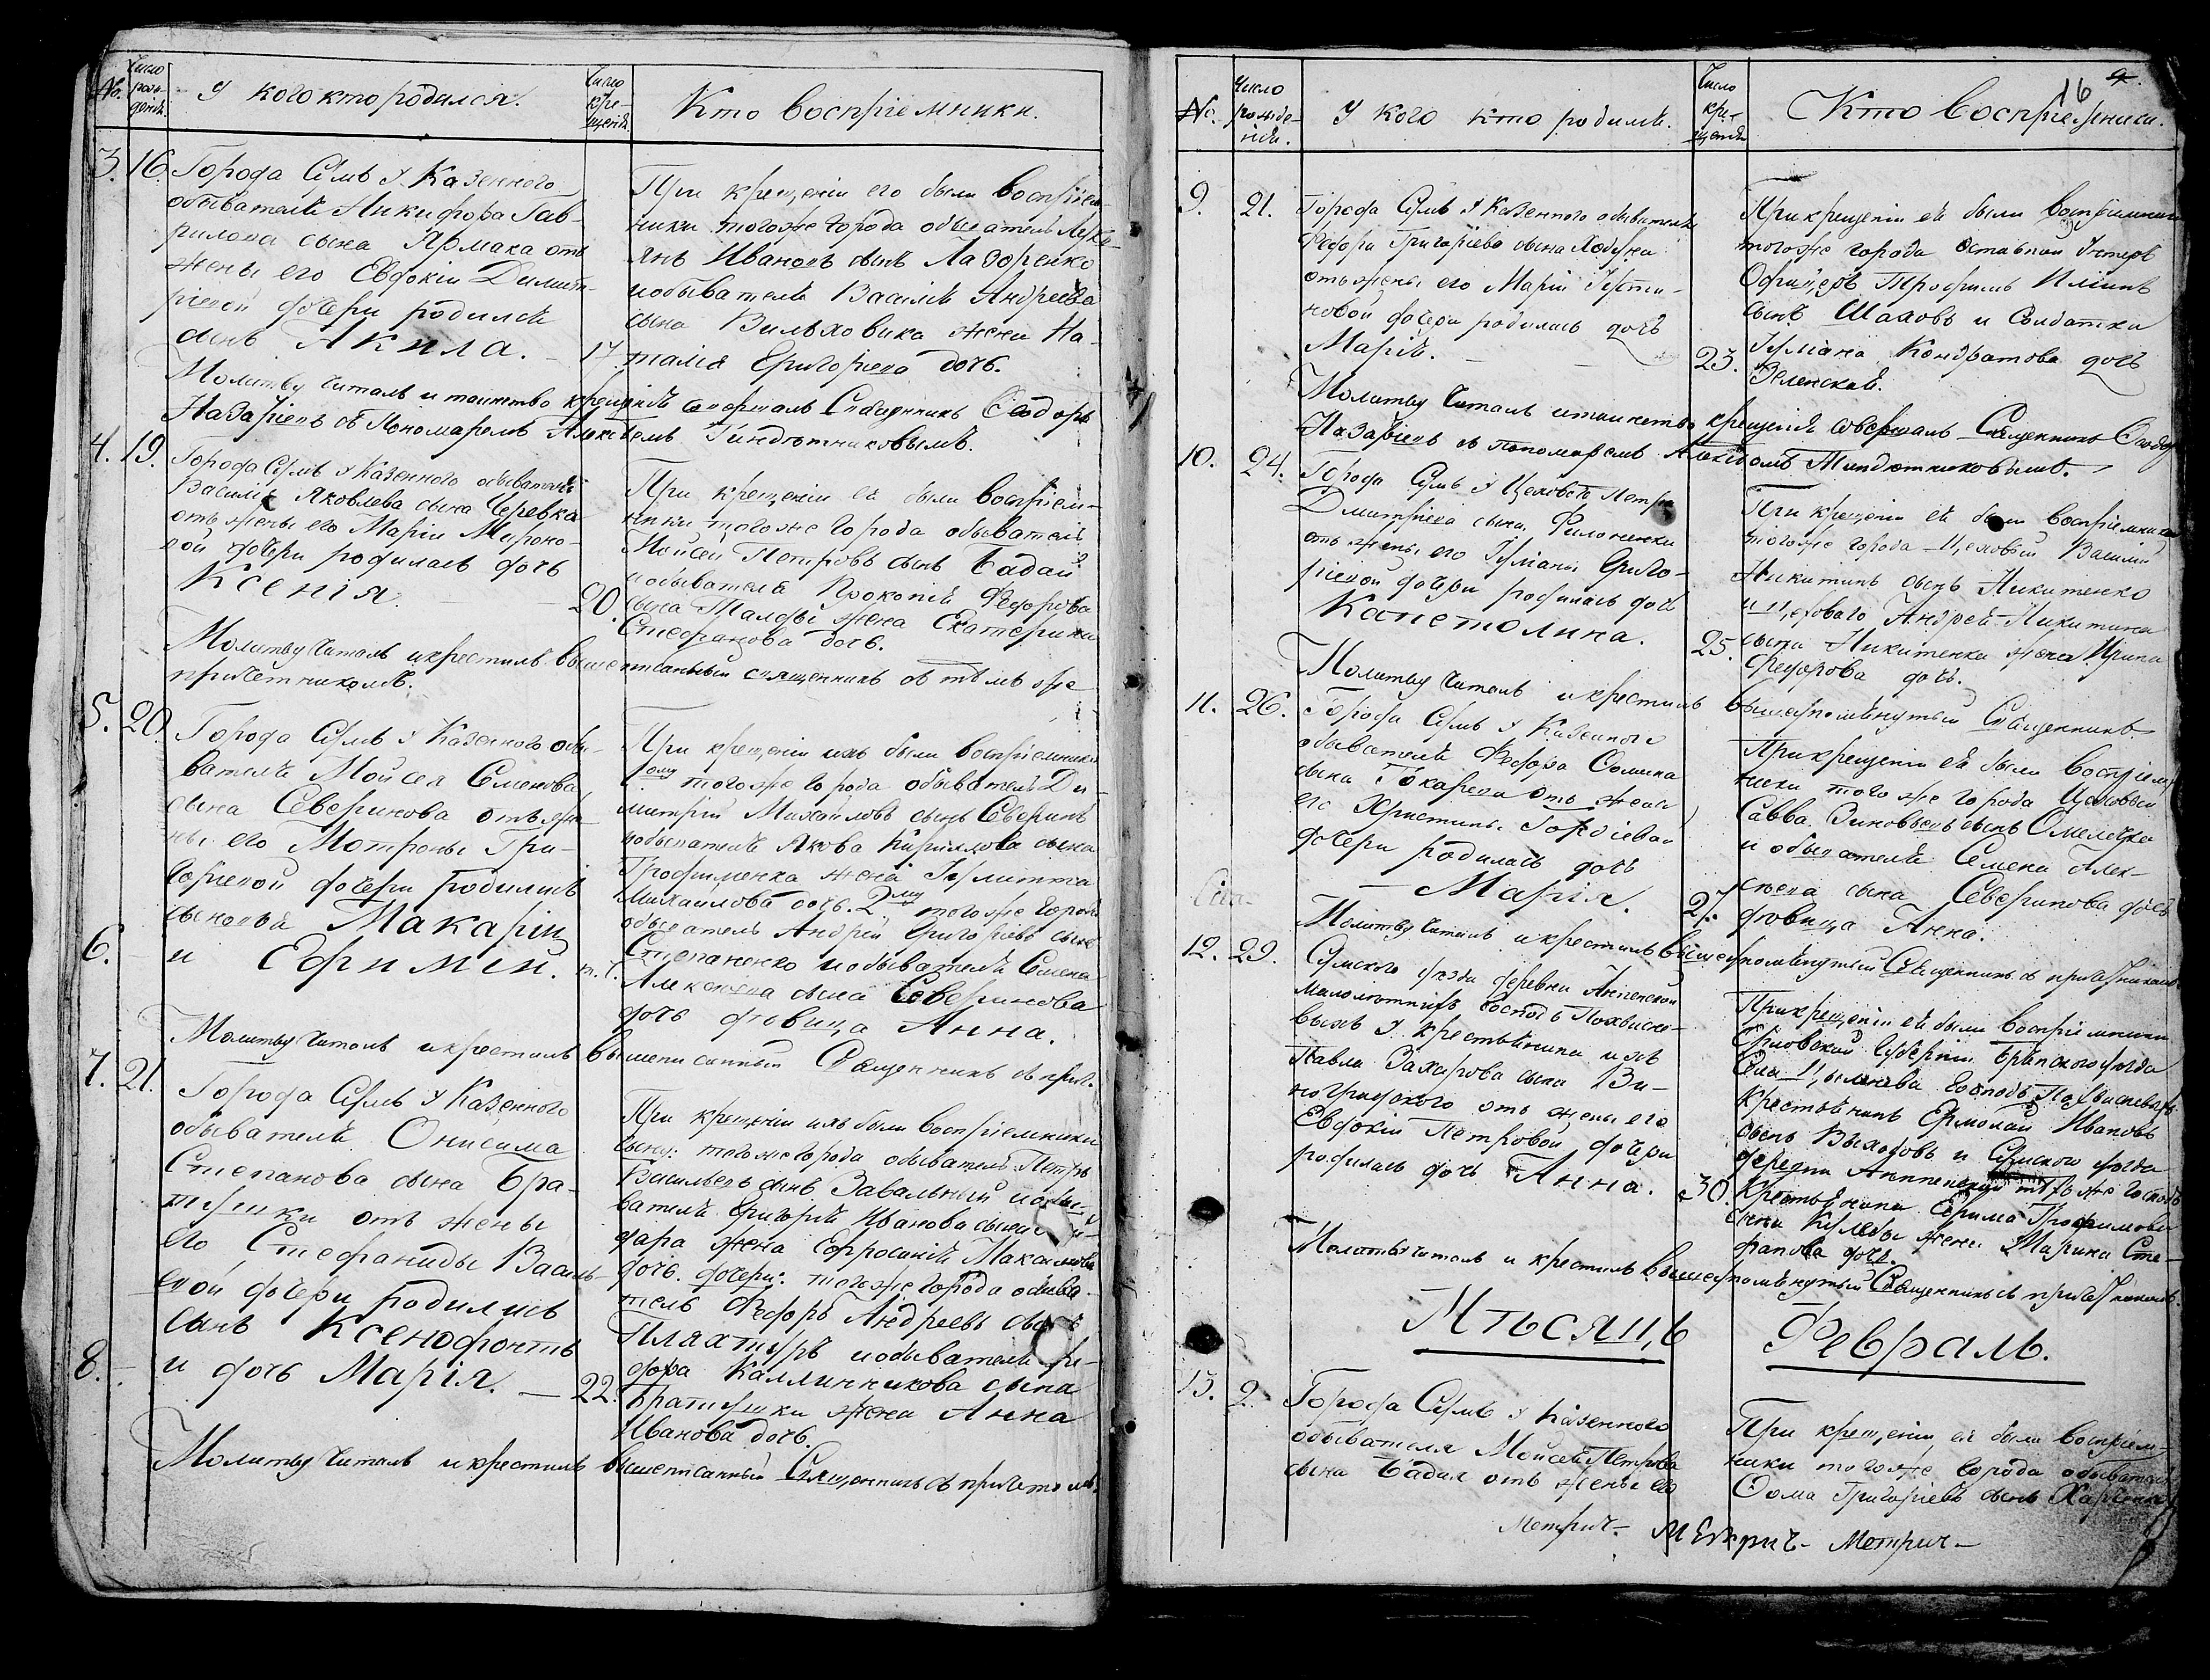 No.
Число рожденія.
У кого кто родился.
Число крещенія
Кто воспріемники.
3. 16.
Города Сумъ у Казенного
обывателя Никифора Гав-
рилова сына Ярмака отъ
жены его Евдокіи Димит-
ріевой дочери родился
сынъ Акила. 17.
При крещеніи его были воспріем-
ники тогоже города обыватель
Ивановъ сынъ Лазоренко
и обывателя Василія Андреева
сына Вильховика жена На-
талія Григоріева дочь.
Молитву читалъ и таинство крещенія совершалъ Священникъ Ѳеодоръ
Назаріевъ съ Пономаремъ
4. 19.
Города Сумъ у Казенного обывателя
Василія Яковлева сына Черевка
отъ жены его Маріи Мироно-
вой дочери родилась дочь
Ксенія. 20.
При крещеніи ея были воспріем-
ники тогоже города обыватель
Мойсей Петровъ сынъ Бадай
и обывателя Прокопія Федорова
сына жена Екатерина
Стефанова дочь.
Молитву читалъ и крестилъ вышеписанный священникъ съ тѣмъ же
причетникомъ.
5. 20.
Города Сумъ у Казенного обы-
вателя Мойсея Семенова
сына Северинова отъ же-
ны его Мотроны Гри-
горіевой дочери родились
сыновья Макарій
6.
и Ефимій. т. ч.
При крещеніи ихъ были воспріемники
1му тогоже города обыватель Ди-
митрій Михайловъ сынъ Северинъ
и обывателя Якова Кириллова сына
Трофименка жена Іулитта
Михайлова дочь. 2му тогоже города
обыватель Андрей Григоріевъ сынъ
Степаненко и обывателя Семена
Алексѣева сына Северинова
дочь дѣвица Анна.
Молитву читалъ и крестилъ вышеписанный Священникъ съ прич.
7. 21.
Города Сумъ у Казенного
обывателя Онисима
Степанова сына Бра-
тушки отъ жены
его Стефаниды Василь-
евой дочери родились
сынъ Ксенофонтъ
8.
и дочь Марія. 22.
При крещеніи ихъ были воспріемники
сыну: тогоже города обыватель Петръ
Васильевъ сынъ Завальный и обы-
вателя Григорія Иванова сына
жена Ефросинія Максимова
дочь. дочери: тогоже города обыва-
тель Федоръ Андреевъ сынъ
Плахтыръ и обывателя
Каллинникова сына
Братушки жена Анна
Иванова дочь.
Молитву читалъ и крестилъ вышеписанный Священникъ съ причетомъ.
16
No.
Число рожде-
нія.
У кого кто родился.
Число кре-
щенія
Кто воспріемники.
9. 21.
Города Сумъ у Казенного обывателя
Федора Григоріева сына
отъ жены его Маріи Іусти-
новой дочери родилась дочь
Марія. 23.
При крещеніи ея были воспріемники
тогоже города отставной Унтеръ
Офицеръ Трофимъ Ильинъ
сынъ Шаховъ и Солдатки
Іуліана Кондратова дочь
Зеленская.
Молитву читалъ и таинство крещенія совершалъ Священникъ Ѳеодоръ
Назаріевъ съ пономаремъ
10. 24.
Города Сумъ у Цеховаго Петра
Дмитріева сына Филоненки
отъ жены его Іуліаны Григо-
ріевой дочери родилась дочь
Капетолина. 25.
При крещеніи ея были воспріемники
тогоже города Цеховый Василій
Никитинъ сынъ Никитенко
и Цеховаго Андрея Никитина
сына Никитенки жена Ирина
Федорова дочь.
Молитву читалъ и крестилъ вышеупомянутый Священникъ
11. 26.
Города Сумъ у Казенного
обывателя Федора Ѳомина
сына Токарева отъ жены
его Христины Гордіевой
дочери родилась дочь
Марія. 27.
При крещеніи ея были воспріем-
ники тогоже города Цеховый
Савва Зиновьевъ сынъ Омелечко
и обывателя Семена Алек-
сѣева сына Северинова дочь
дѣвица Анна.
Молитву читалъ и крестилъ вышеупомянутый Священникъ съ причетникомъ
12. 29.
Сумского уѣзда деревни Анненской
малолѣтнихъ господъ Похвисне-
выхъ у крестьянина ихъ
Павла Захарова сына Ви-
ноградского отъ жены его
Евдокіи Петровой дочери
родилась дочь Анна. 30.
При крещеніи ея были воспріемники
Орловской Губерніи Брянскаго уѣзда
села господъ Похвисневыхъ
Крестьянинъ Ермолай Ивановъ
сынъ Выходовъ и Сумского уѣзда
деревни Анненской тѣхъ же господъ
Крестьянина Ефима Трофимова
сына Кулебы жена Марина Сте-
фанова дочь.
Молитву читалъ и крестилъ вышеупомянутый Священникъ съ причетникомъ.
Мѣсяцъ Февраль.
13. 2.
Города Сумъ у Казенного
обывателя Мойсея Петрова
сына Бадая отъ жены его
При крещеніи ея были воспріем-
ники тогоже города обыватель
Ѳома Григорьевъ сынъ Харченко
Метрич- Метрич- Метрич-